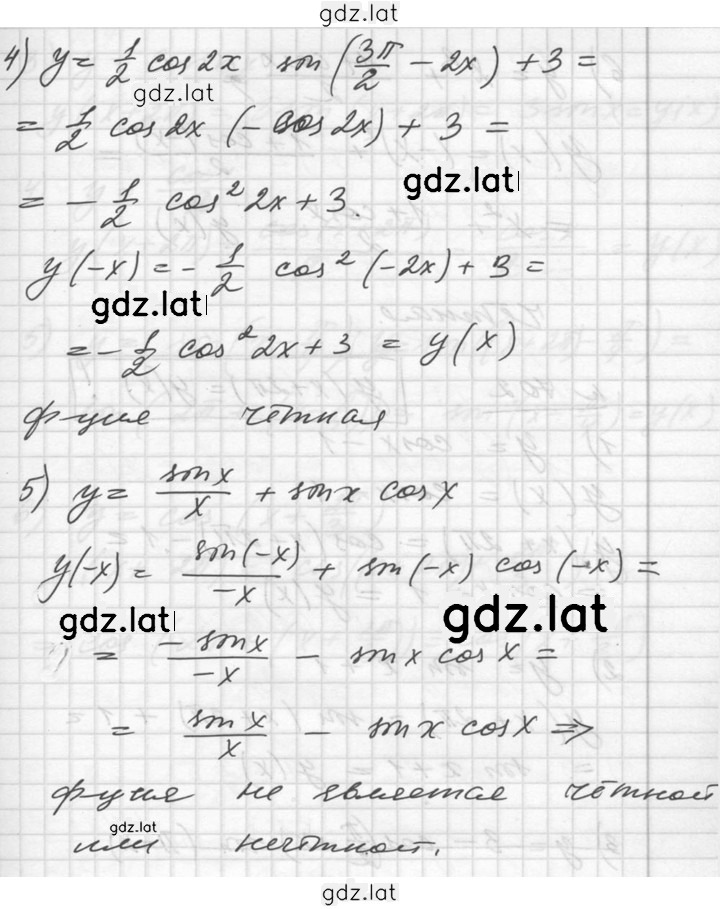 gdz.lat
4) y = 1/2 cos 2x sin (3π/2 - 2x) + 3 =
gdz.lat
= 1/2 cos 2x (- cos 2x) + 3 =
gdz.lat
= - 1/2 cos² 2x + 3.
y(-x) = - 1/2 cos² (-2x) + 3 =
gdz.lat
= - 1/2 cos² 2x + 3 = y(x)
функция чётная
5) y = sin x / x + sin x cos x
y(-x) = sin(-x) / -x + sin(-x) cos(-x) =
gdz.lat gdz.lat
= - sin x / -x - sin x cos x =
= sin x / x - sin x cos x ⇒
функция не является чётной
gdz.lat
или нечётной.
gdz.lat